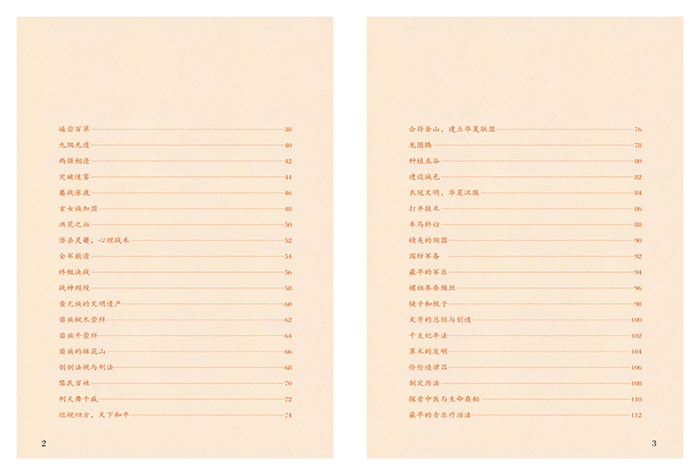 遍尝百草 38
九隅无遗 40
两强相逢 42
突破迷雾 44
鏖战涿鹿 46
玄女族加盟 48
洪荒之血 50
游击灵夔，心理战术 52
全军崩溃 54
终极决战 56
战神殒殁 58
蚩尤族的文明遗产 60
苗族枫木崇拜 62
苗族牛崇拜 64
苗族的踩花山 66
创制法规与刑法 68
黎民百姓 70
刑天舞干戚 72
巡视四方，天下和平 74
2
合符釜山，建立华夏联盟 76
龙图腾 78
种植五谷 80
建设城邑 82
衣冠文明，华夏汉服 84
打井技术 86
车马杵臼 88
精美的陶器 90
国防军备 92
最早的军乐 94
嫘祖养蚕缫丝 96
镜子和梳子 98
文字的总结与创造 100
干支纪年法 102
算术的发明 104
伶伦造律吕 106
制定历法 108
探索中医与生命奥秘 110
最早的音乐疗治法 112
3